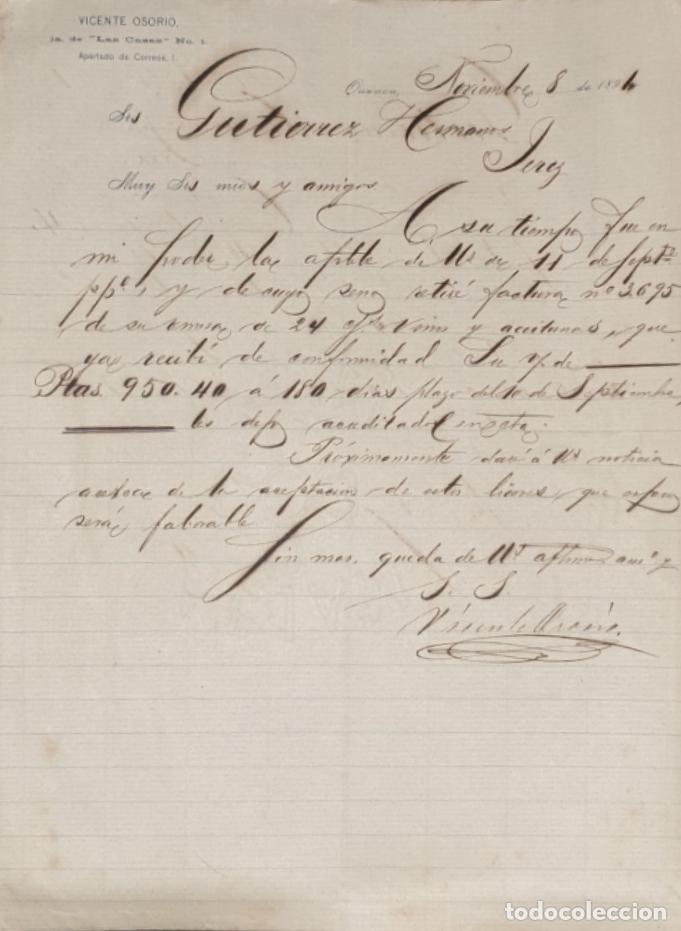 VICENTE OSORIO,
1a. de "Las Casas" No. 1.
Apartado de Correos, 1.
Oaxaca, Noviembre 8 de 189
Srs Gutierrez Hermanos
Jerez
Muy Srs mios y amigos
A su tiempo fue en
mi poder la apble de Us de 11 de Sept.
pp.º, y de cuyo seno retiré factura nº 3695
de su remesa de 24 vino y aceitunas, que
ya recibí de conformidad. Su de
Ptas. 950.40 á 180 dias plazo del 10 de Septiembre,
les dejo acreditado en cta.
Próximamente daré á Us noticia
acerca de la aceptacion de estos licores, que espero
será faborable
Sin mas, queda de Us afmo am.º y
S. S.
Vicente Osorio.
todocoleccion.net